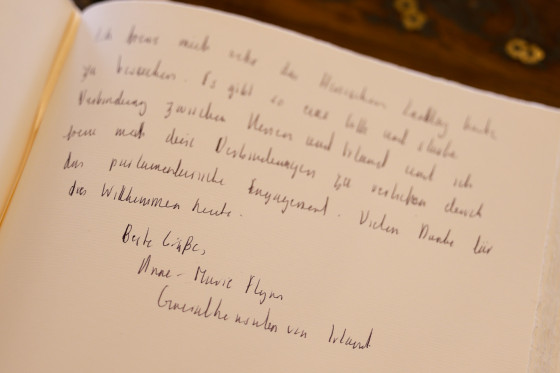 Ich freue mich sehr den Hessischen Landtag heute
zu besuchen. Es gibt so eine tolle und starke
Verbindung zwischen Hessen und Irland und ich
freue mich diese Verbindungen zu vertiefen durch
das parlamentarische Engagement. Vielen Danke für
das Willkommen heute.
Beste Grüße,
Anne-Marie Flynn
Generalkonsulen von Irland